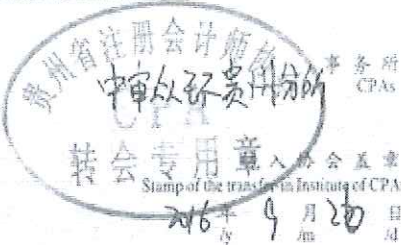 贵州省注册会计师协会
中审众环贵州分所 事务所
CPAs
CPA
转会专用章
转入协会盖章
Stamp of the transfer-in Institute of CPA
2016年9月20日
/y /m /d